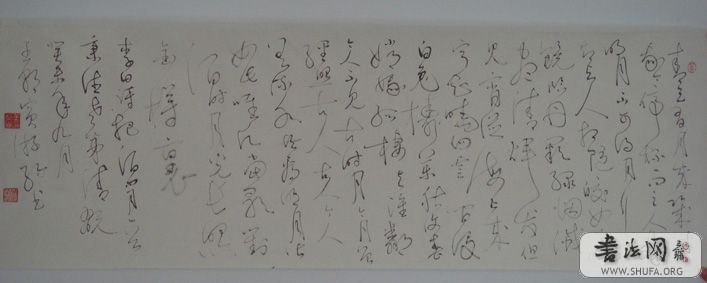 青天有月来几时
我今停杯一问之人攀
明月不可得月行
却与人相随皎如飞
镜临丹阙绿烟灭
尽清辉发但
见宵从海上来
宁知晓向云间没
白兔捣药秋复春
嫦娥孤栖与谁邻
今人不见古时月今月曾
经照古人古人今人
若流水共看明月皆
如此唯愿当歌对
酒时月光长照
金樽裏
李白诗把酒问月一首
年九月
书法网
WWW.SHUFA.ORG